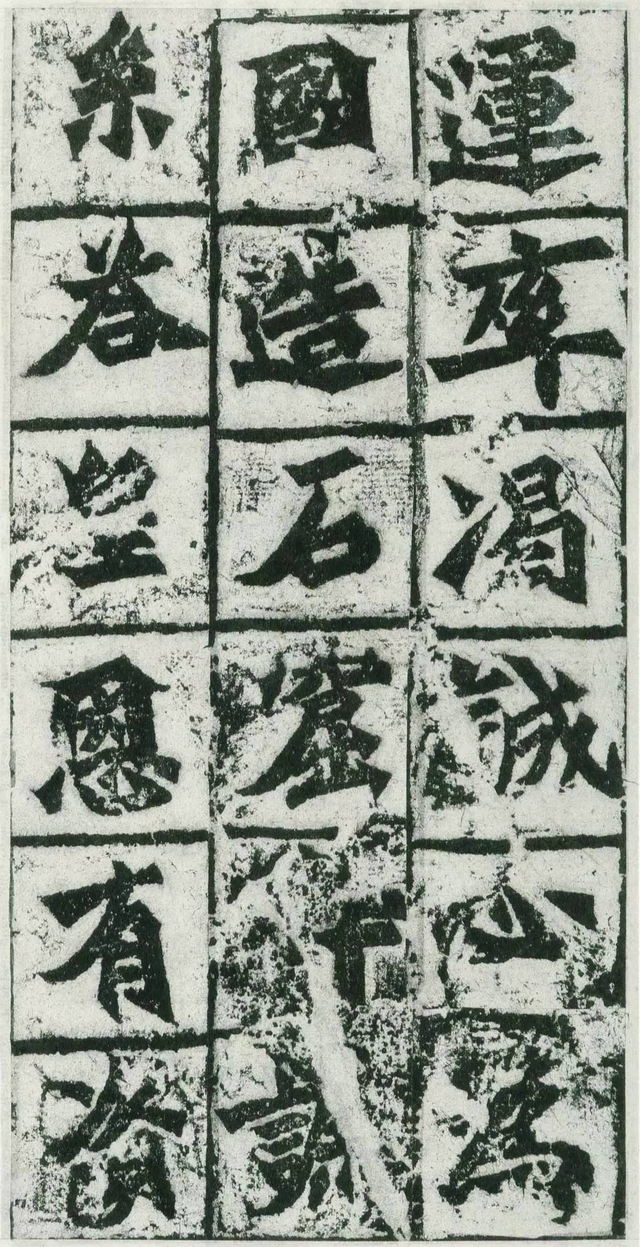 運率渴誠心爲
國造石窟
系荅皇恩有資